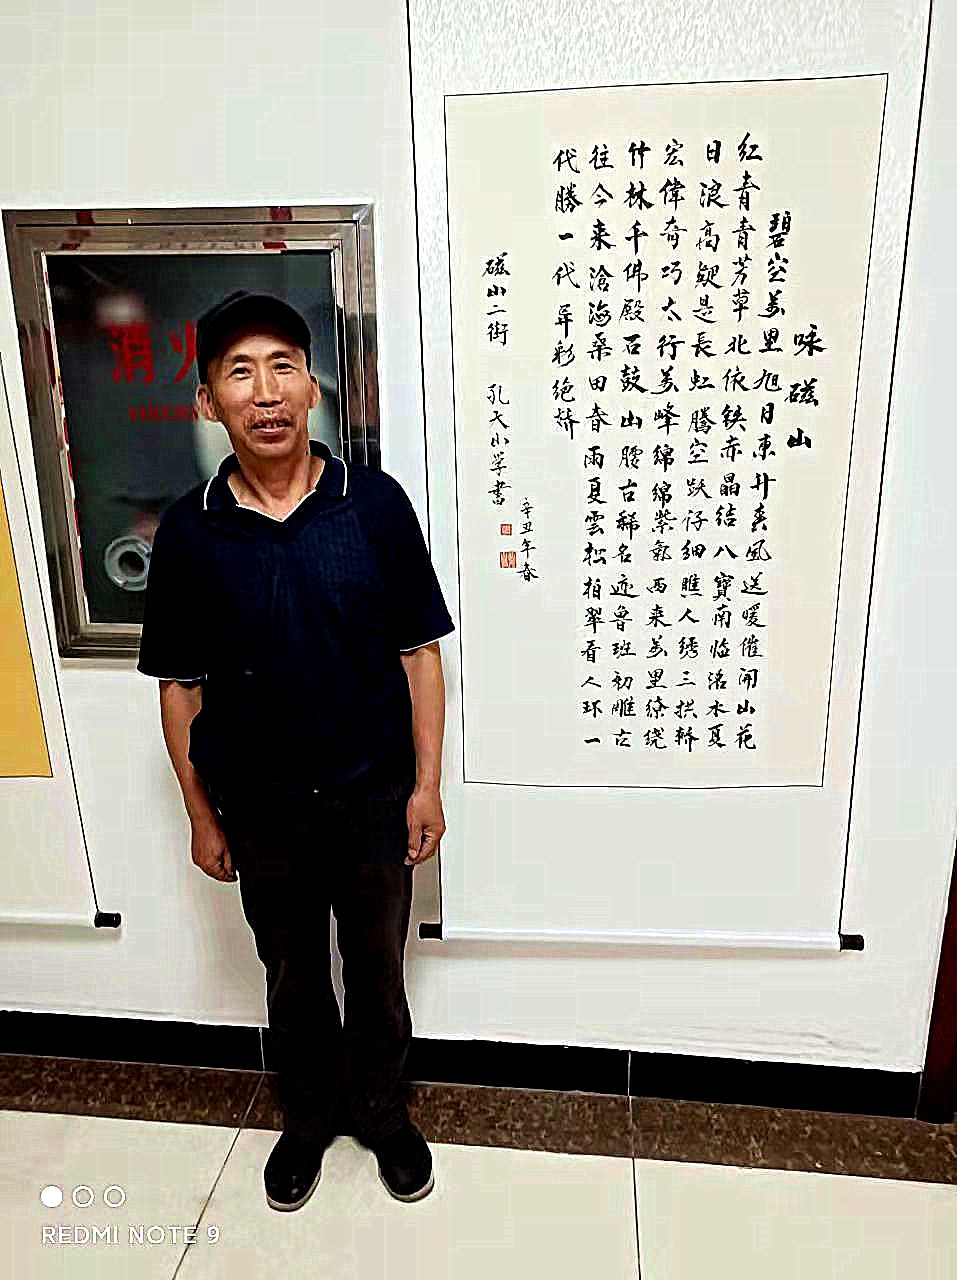 咏磁山
碧空万里旭日東升春風送暖催開山花
红青青芳草北依鉄赤晶结八寶南临洺水夏
日浪高鯉是長虹騰空跃仔细瞧人绣三拱轎
宏偉奇巧太行万峰綿綿紫氣西来万里缭绕
竹林千佛殿石鼓山腰古稀名迹鲁班初雕古
往今来滄海桑田春雨夏雲松柏翠看人环一
代勝一代异彩绝娇
磁山二街 孔大小学書
辛丑年春
消火
REDMI NOTE 9